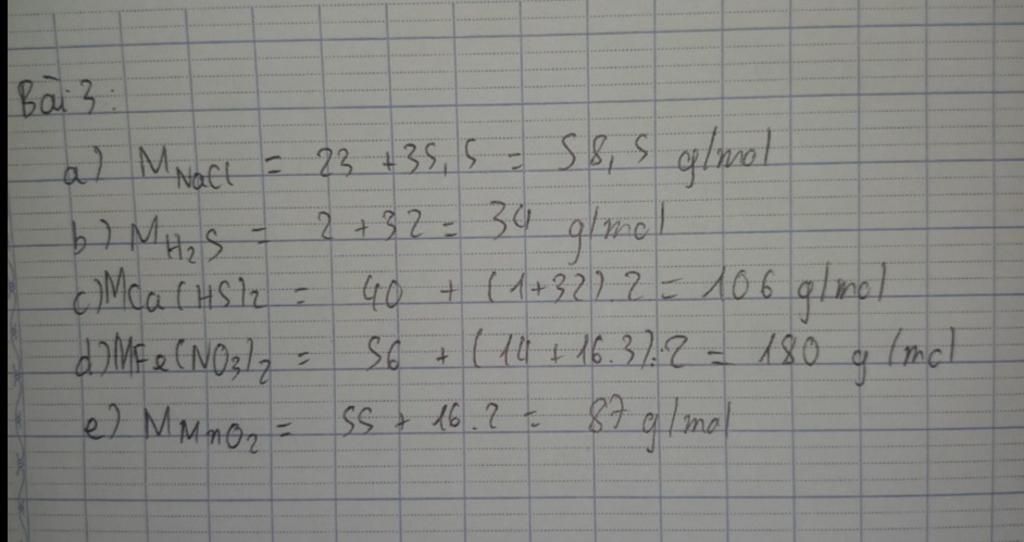 Bài 3:
a) M NaCl = 23 + 35,5 = 58,5 g/mol
b) M H2S = 2 + 32 = 34 g/mol
c) MCa(HS)2 = 40 + (1+32).2 = 106 g/mol
d) MFe(NO3)2 = 56 + (14 + 16.3).2 = 180 g/mol
e) M MnO2 = 55 + 16.2 = 87 g/mol